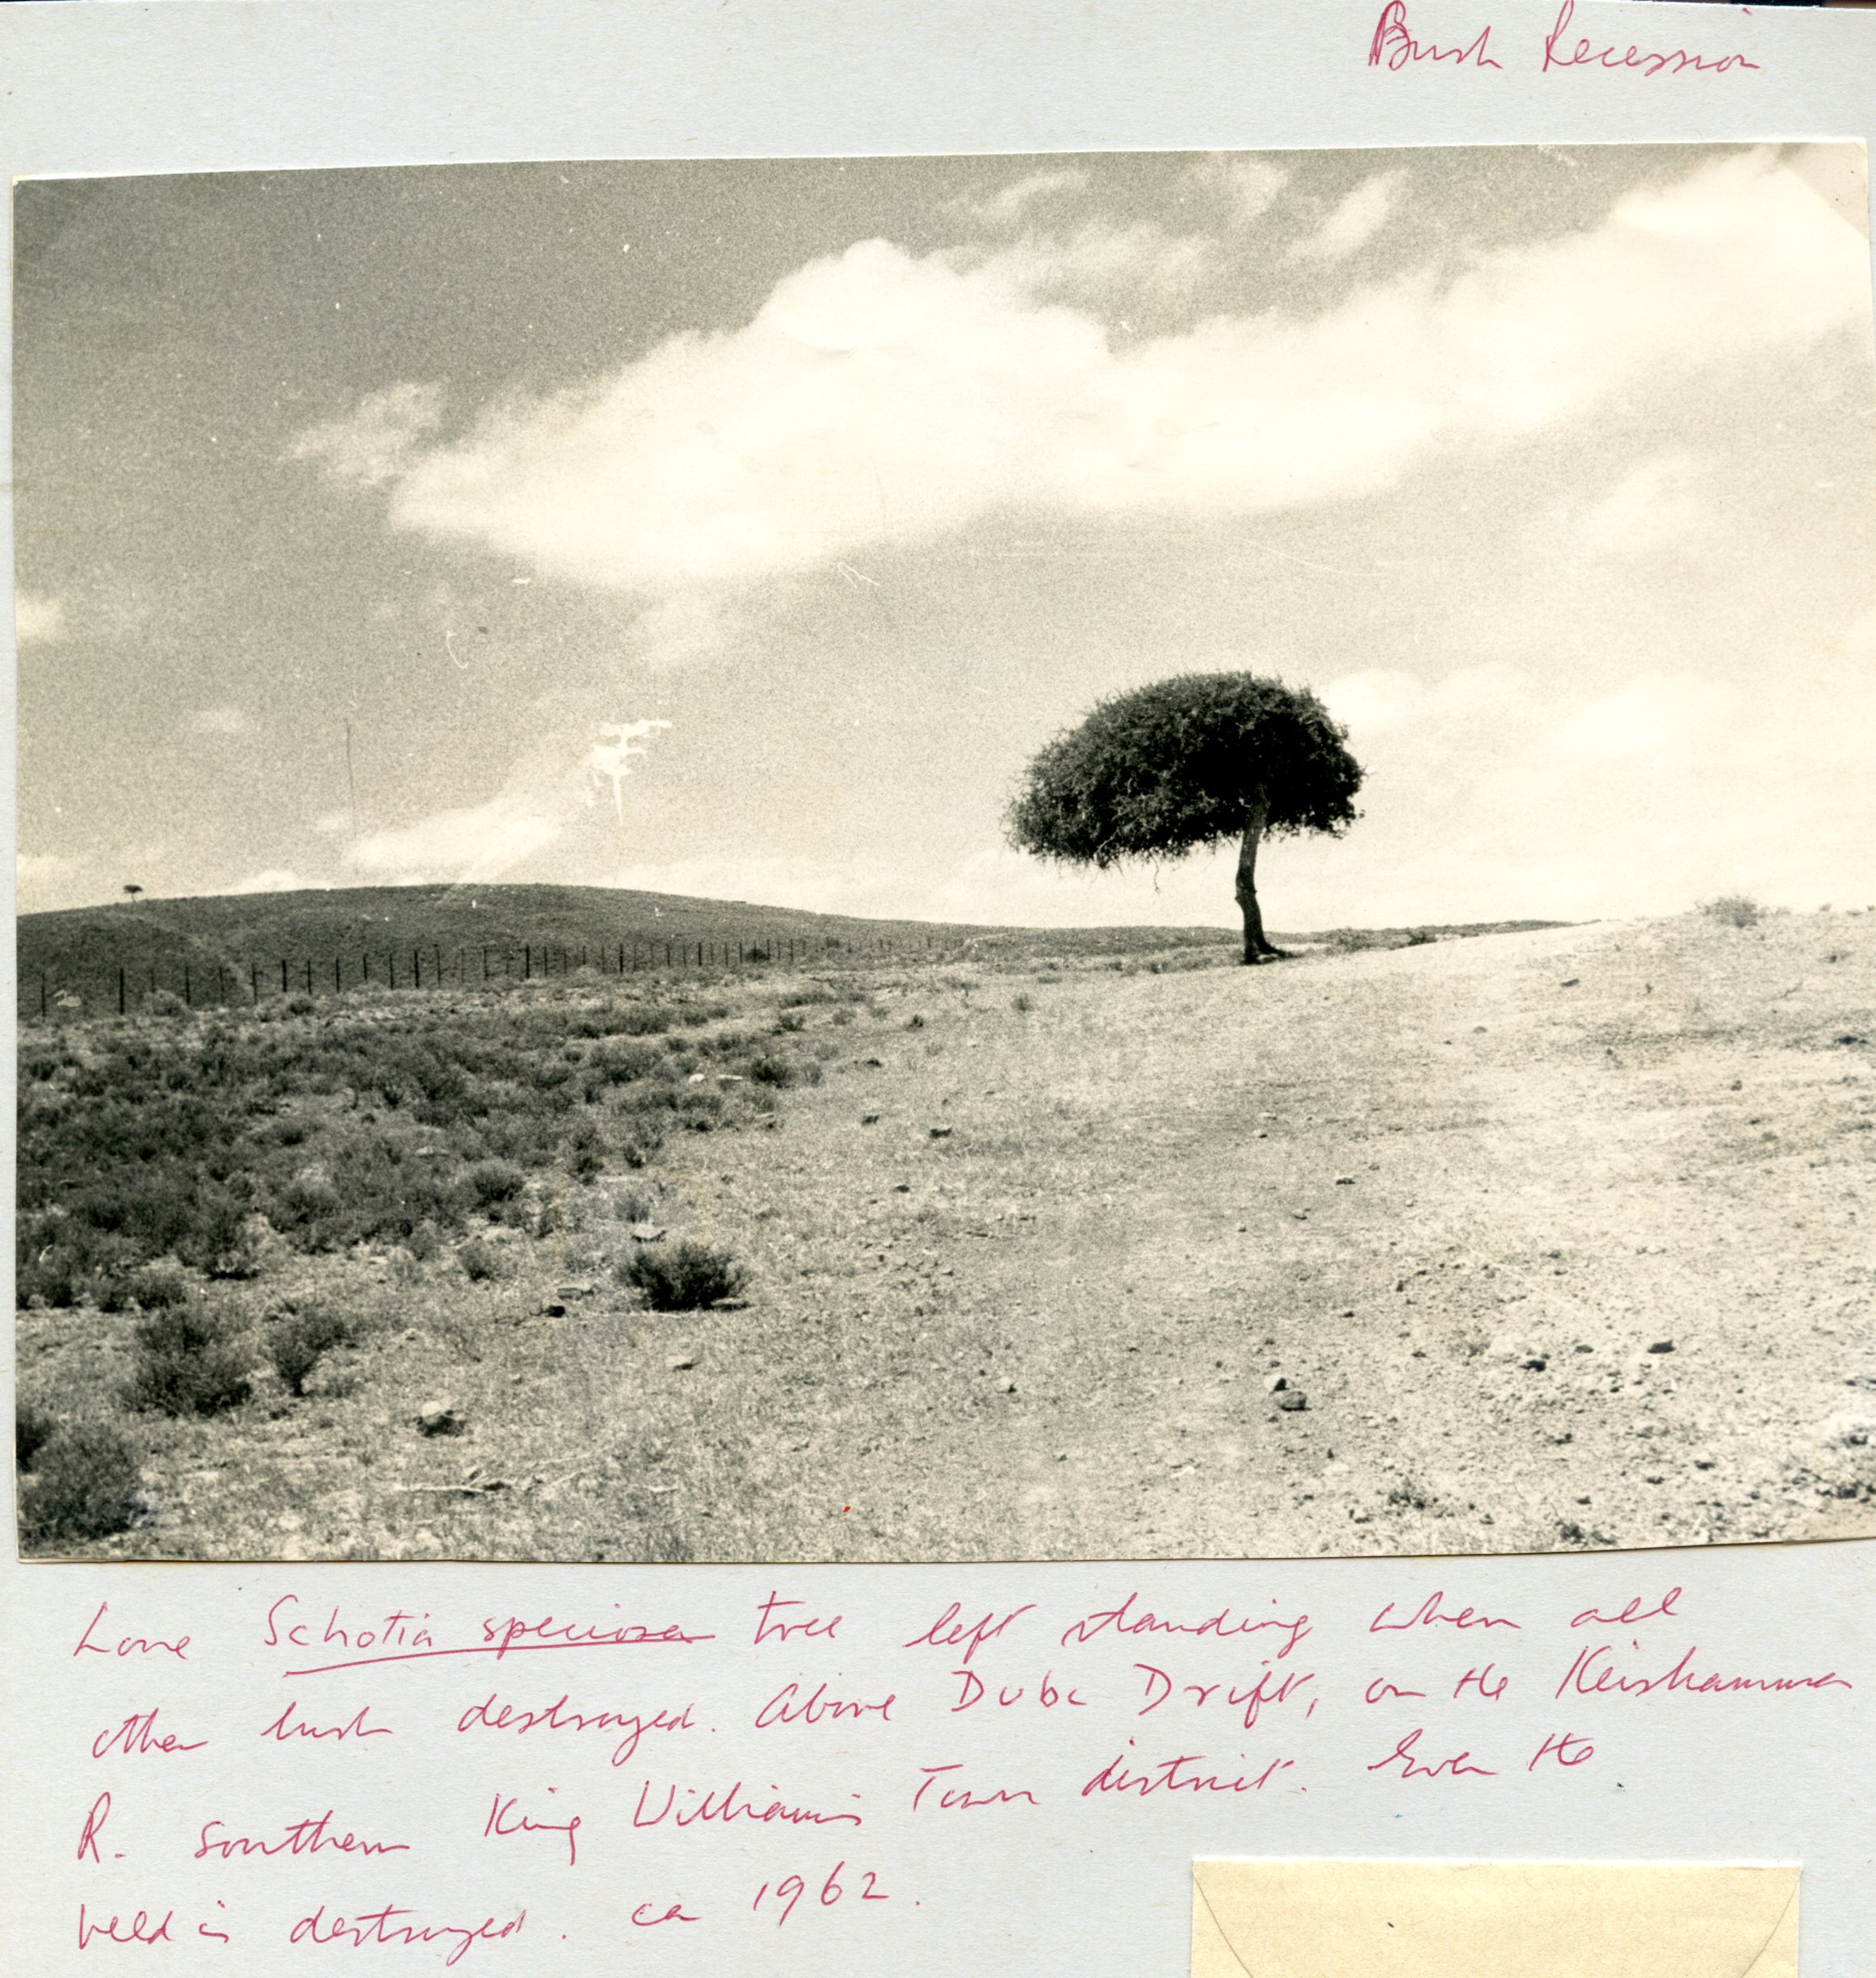 Bush Recession
Lone Schotia speciosa tree left standing when all
other bush destroyed. Above Dube Drift, on the Keiskamma
R. southern King William's Town district. Even the
veld is destroyed. ca 1962.